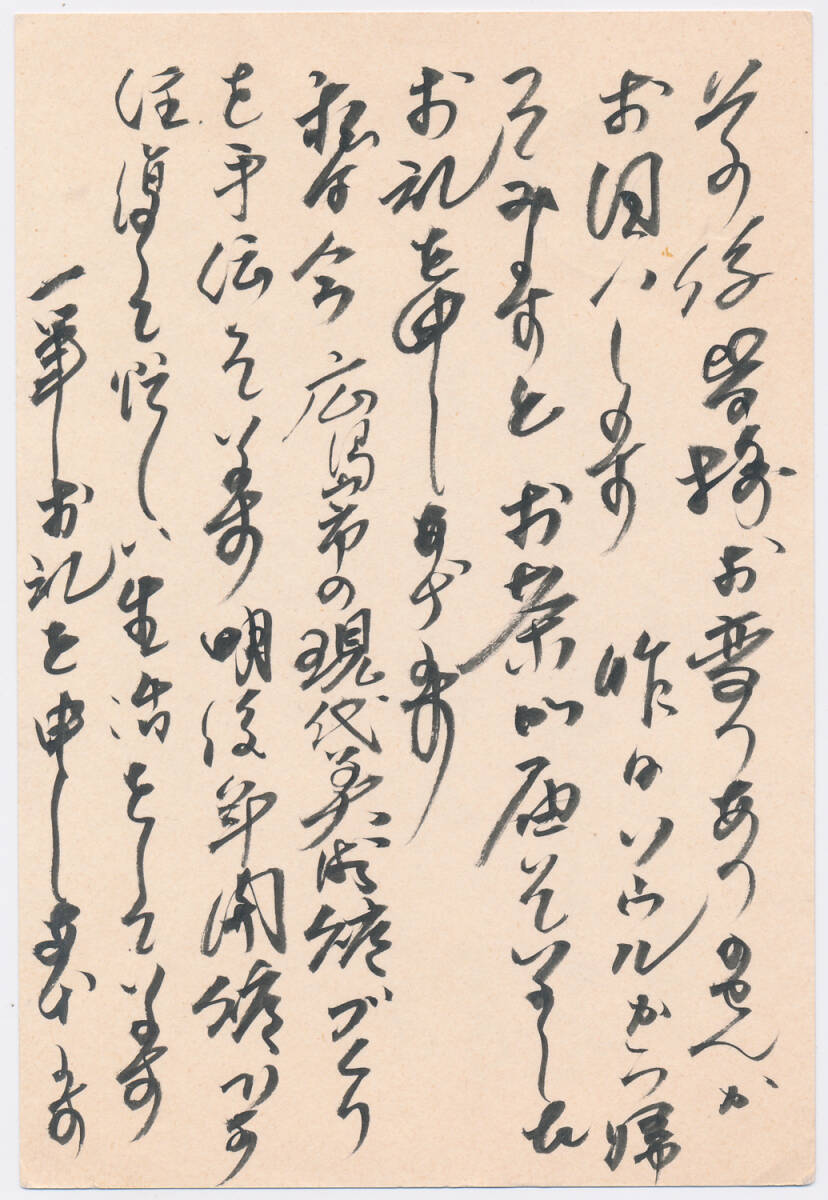 その後皆様お変りありませんか
お伺いします 昨日ソウルから帰
ってみますと お茶が届いていました
お礼を申しあげます
私は今 広島市の現代美術館づくり
を手伝っています 明後年開館の
して忙しい生活をしています
一筆お礼を申しあげます